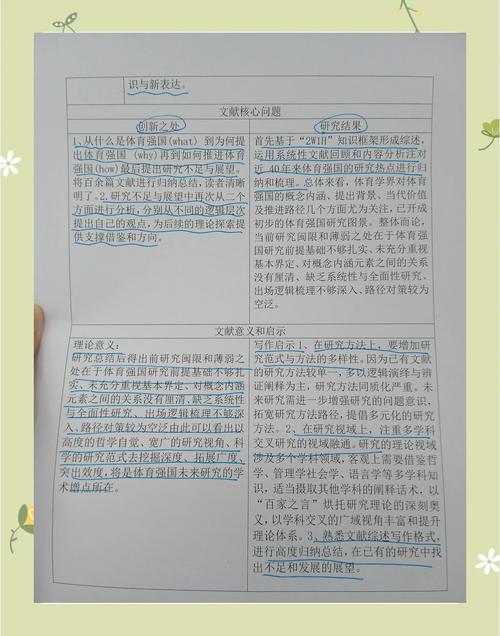 识与新表达。
文献核心问题
创新之处
1、从什么是体育强国(what) 到为何提
出体育强国 (why)再到如何推进体育
强国(how)最后提出研究不足与展望。
将百余篇文献进行归纳总结，读者清晰
明了。2.研究不足与展望中再次从二个
方面进行分析，分别从不同的逻辑层次
提出自己的观点，为后续的理论探索提
供支撑借鉴和方向。
研究结果
首先基于“2W1H”知识框架形成综述，
运用系统性文献回顾和内容分析法对
近 40 年来体育强国的研究热点进行归
纳和梳理。总体来看，体育学界对体育强
国的概念内涵、提出背景、当代价值
及推进路径几个方面尤为关注，已开成
初步的体育强国研究图景。整体而论，
当前研究闽限和薄弱之处在于体育强
国研究前提基础不够扎实、未充分重视
基本界定、对概念内涵元素之间的关系
没有厘清、缺乏系统性与全面性研究、
出场逻辑梳理不够深入、路径对策较为
空泛。
文献意义和启示
理论意义：
研究总结后得出前研究闽限和薄弱之
处在于体育强国研究前提基础不够扎
实、未充分重视基本界定、对概念内涵
元素之间的关系没有厘清、缺乏系统性
与全面性研究、出场逻辑梳理不够深
入、路径对策较为空泛由此可以看出以
高度的哲学自觉、宽广的研究视角、科
学的研究范式去挖掘深度、拓展广度、
突出效度，将是体育强国未来研究的学
术增点所在。
写作启示 1、在研究方法上，要增加研
究范式与方法的多样性。因为已有文献
的研究方法较单一，多以逻辑演绎与辨
证阐释为主，研究方法同质化严重。未
来研究需进一步增强研究的问题意识，
拓宽研究方法路径，提倡多元化的研究
方法。2、在研究视域上，注重多学科
交叉研究的视域融通。研究的理论视域
涉及多个学科领域，客观上需要借鉴哲
学、管理学社会学、语言学等多学科知
识，适当摄取其他学科的阐释话术，以
“百家之言”烘托研究理论的深刻奥
义，以学科交叉的广域视角丰富和提升
理论体系。3、熟悉文献综述写作格式，
进行高度归纳总结，在已有的研究中找
出不足和发展的展望。